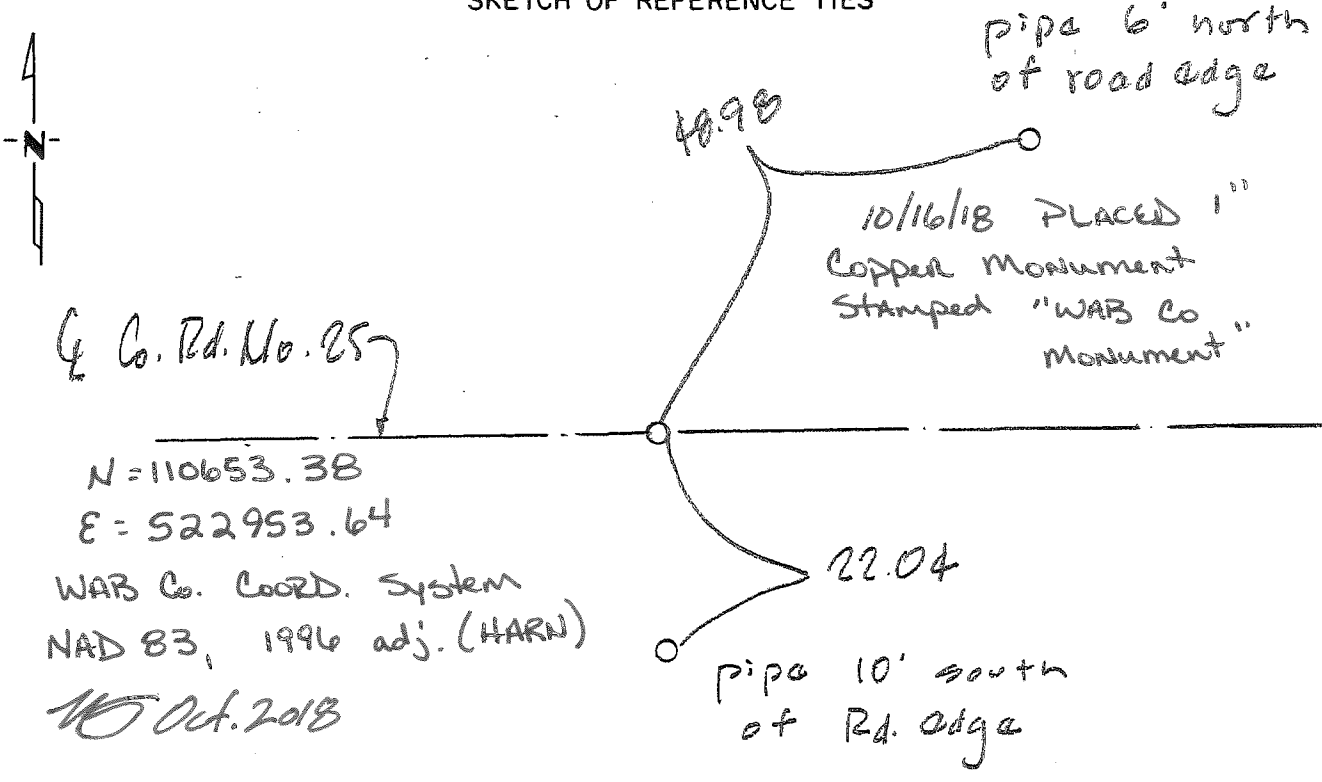 SKETCH OF REFERENCE TIES
pipe 6' north
of road edge
N
48.98
10/16/18 PLACED 1"
Copper Monument
Stamped "WAB Co
Monument"
℄ Co. Rd. No. 25
N = 110653.38
E = 522953.64
WAB Co. COORD. System
NAD 83, 1996 adj. (HARN)
Oct. 2018
22.04
pipe 10' south
of Rd. edge